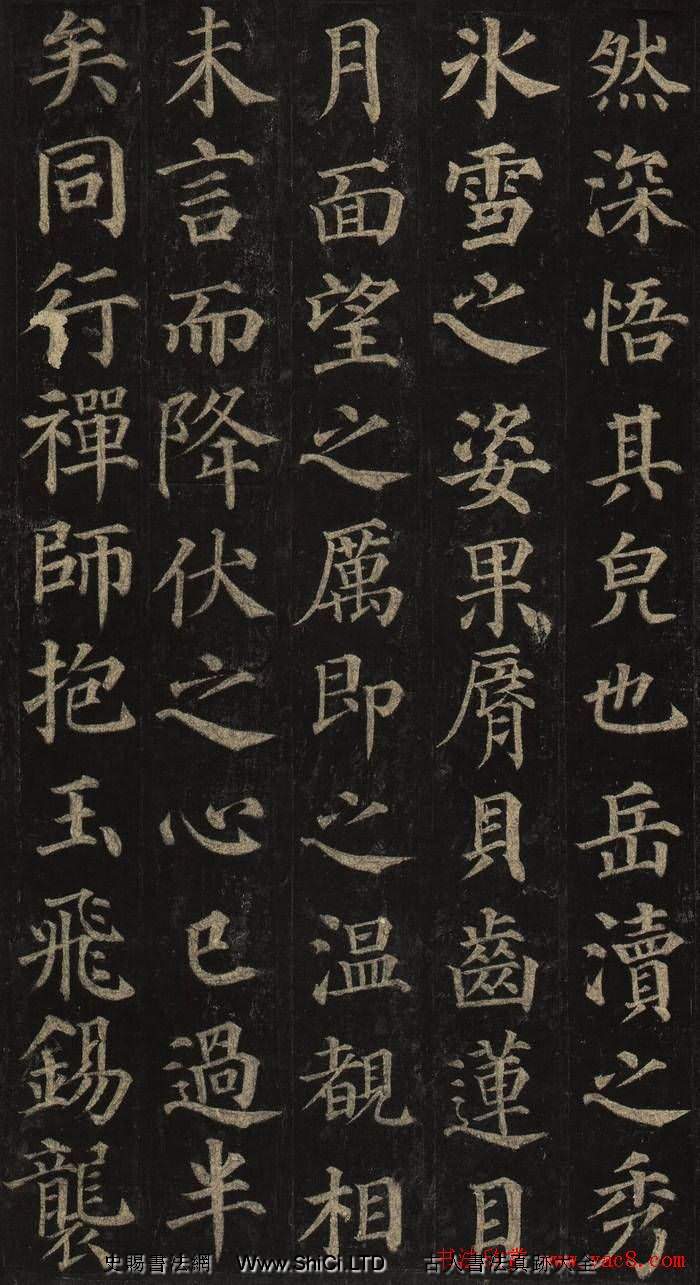 然深悟其皃也岳瀆之秀
氷雪之姿果脣貝齒蓮目
月面望之厲即之温覩相
未言而降伏之心已過半
矣同行禪師抱玉飛錫襲
史賜書法網 Www.ShiCi.LTD 古人書法真跡大全
书法欣赏 www.yac8.com